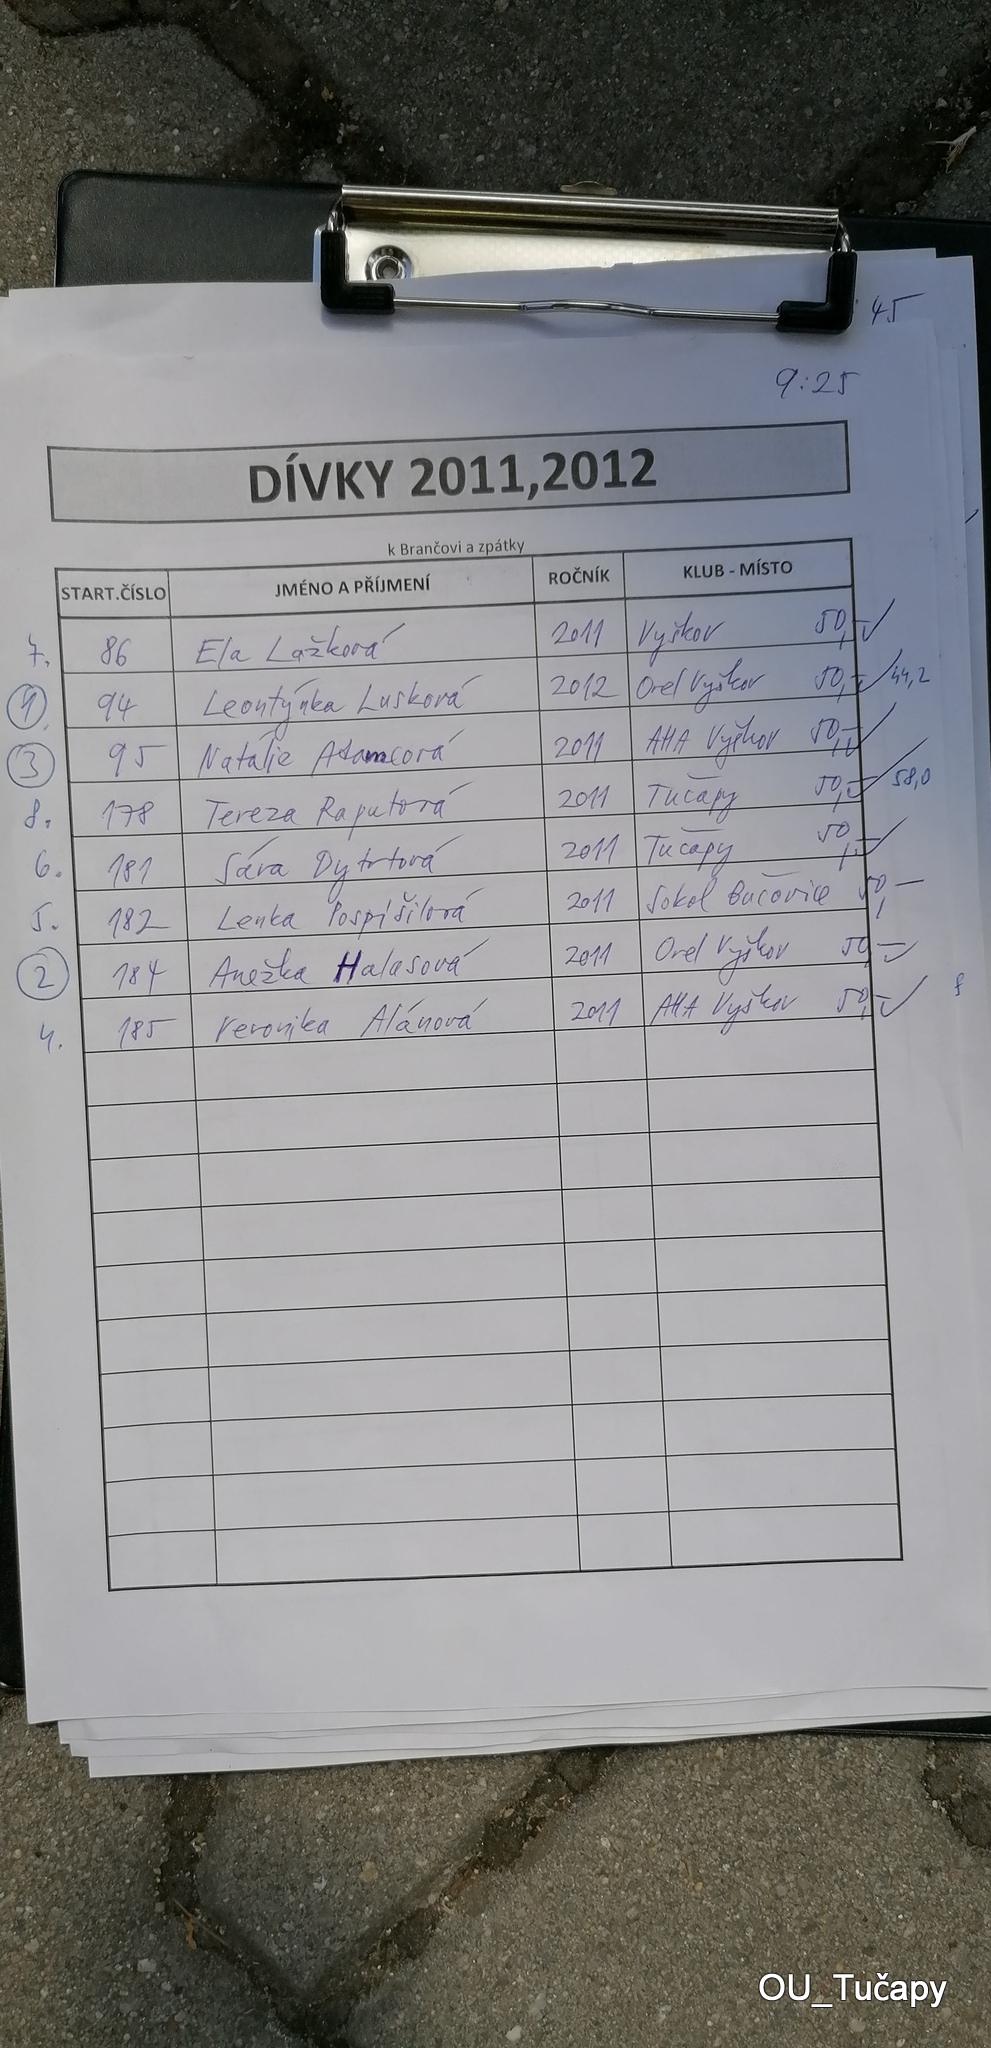 45
9:25
DÍVKY 2011,2012
k Brančovi a zpátky
START.ČÍSLO JMÉNO A PŘÍJMENÍ ROČNÍK KLUB - MÍSTO
7. 86 Ela Lažková 2011 Vyškov 50,-
1. 94 Leontýnka Lusková 2012 Orel Vyškov 50,- 44,2
3 95 Natálie Adamcová 2011 AHA Vyškov 50,-
8. 178 Tereza 2011 Tučapy 50,- 58,0
6. 181 Sára Dytrtová 2011 Tučapy 50,-
5. 182 Lenka Pospíšilová 2011 Sokol Bučovice 50,-
2 184 Anežka Halasová 2011 Orel Vyškov 50,-
4. 185 Veronika Alánová 2011 AHA Vyškov 50,-
OU_Tučapy